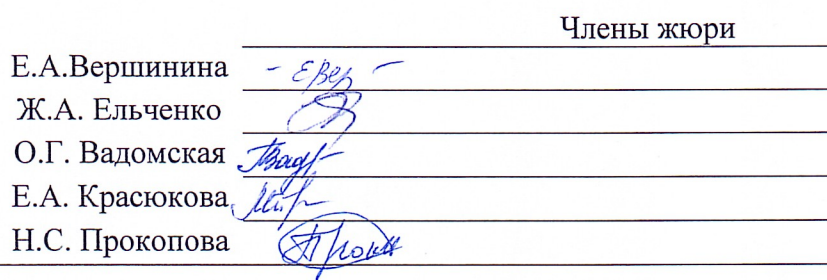 Члены жюри
Е.А.Вершинина
Ж.А. Ельченко
О.Г. Вадомская
Е.А. Красюкова
Н.С. Прокопова